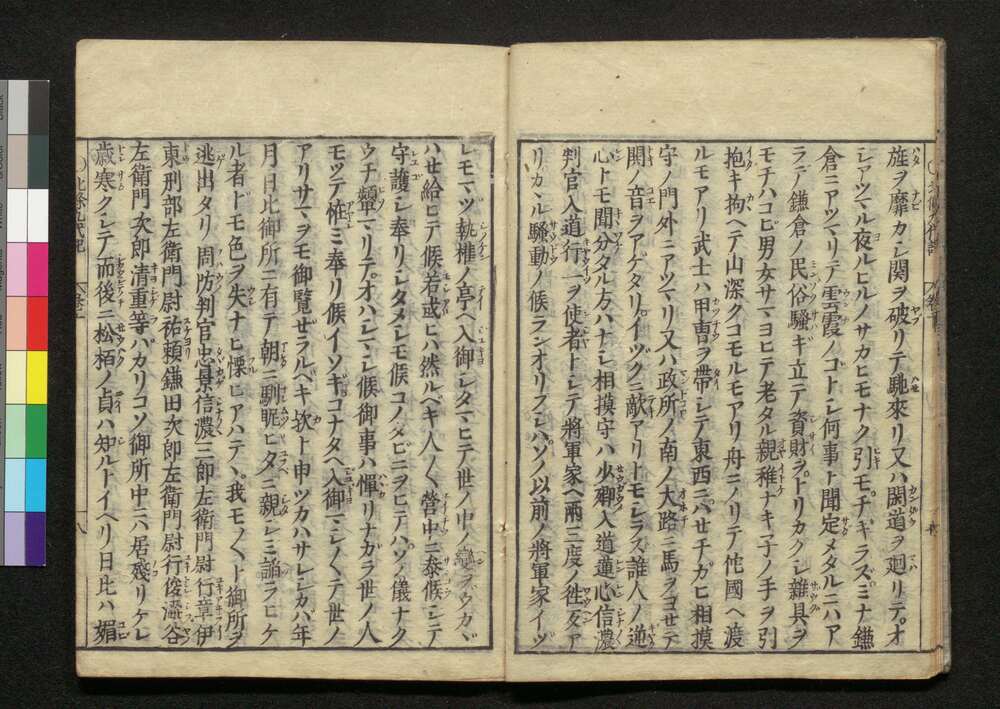 旌ヲ靡カシ関ヲ破リテ馳來リ又ハ閑道ヲ廻リテオ
シアツマル夜ルヒルノサカヒモナク引モチギラズミナ鎌
倉ニアツマリテ雲霞ノゴトシ何事ト聞定メタルニハア
ラデ鎌倉ノ民俗騒ギ立テ資財ヲトリカクシ雜具ヲ
モチハコビ男女サマヨヒテ老タル親稚ナキ子ノ手ヲ引
抱キ拘ヘテ山深クコモルモアリ舟ニノリテ佗國ヘ渡
ルモアリ武士ハ甲曹ヲ帶シテ東西ニハセチガヒ相摸
守ノ門外ニアツマリ又ハ政所ノ南ノ大路ニ馬ヲヨセテ
関ノ音ヲアゲタリイヅクニ敵アリトモシラス誰人ノ逆
心トモ聞分タル方ハナシ相摸守ハ少卿入道蓮心信濃
判官入道行一ヲ使者トシテ將軍家ヘ兩三度ノ徃反ア
リカヽル騒動ノ候ランオリフシハソノ以前ノ將軍家イヅ
レモマヅ執権ノ亭ヘ入御シタマヒテ世ノ中ノ變ヲウカヾ
ハセ給ヒテ候若或ヒハ然ルベキ人〱營中ニ泰候シテ
守護シ奉リシタメシモ候コノタビニヲヒテハソノ儀ナク
ウチ顰マリテオハシマシ候御事ハ憚リナガラ世ノ人
モツテ恠ミ奉リ候イソギコナタヘ入御マシ〱テ世ノ
アリサマヲモ御覧ゼラルベキ欤ト申ツカハサレシカバ年
月日比御所ニ有テ朝ニ馴眤ヒタニ親シミ謟ラヒケ
ル者ドモ色ヲ失ナヒ慄ヒアハテヽ我モ〱ト御所ヲ
逃出タリ周防判官忠景信濃三郎左衛門尉行章伊
東刑部左衛門尉祐頼鎌田次郎左衛門尉行俊澁谷
左衛門次郎清重等バカリコソ御所中ニハ居殘リケレ
歳寒クシテ而後ニ松栢ノ貞ハ知ルトイヘリ日比ハ媚